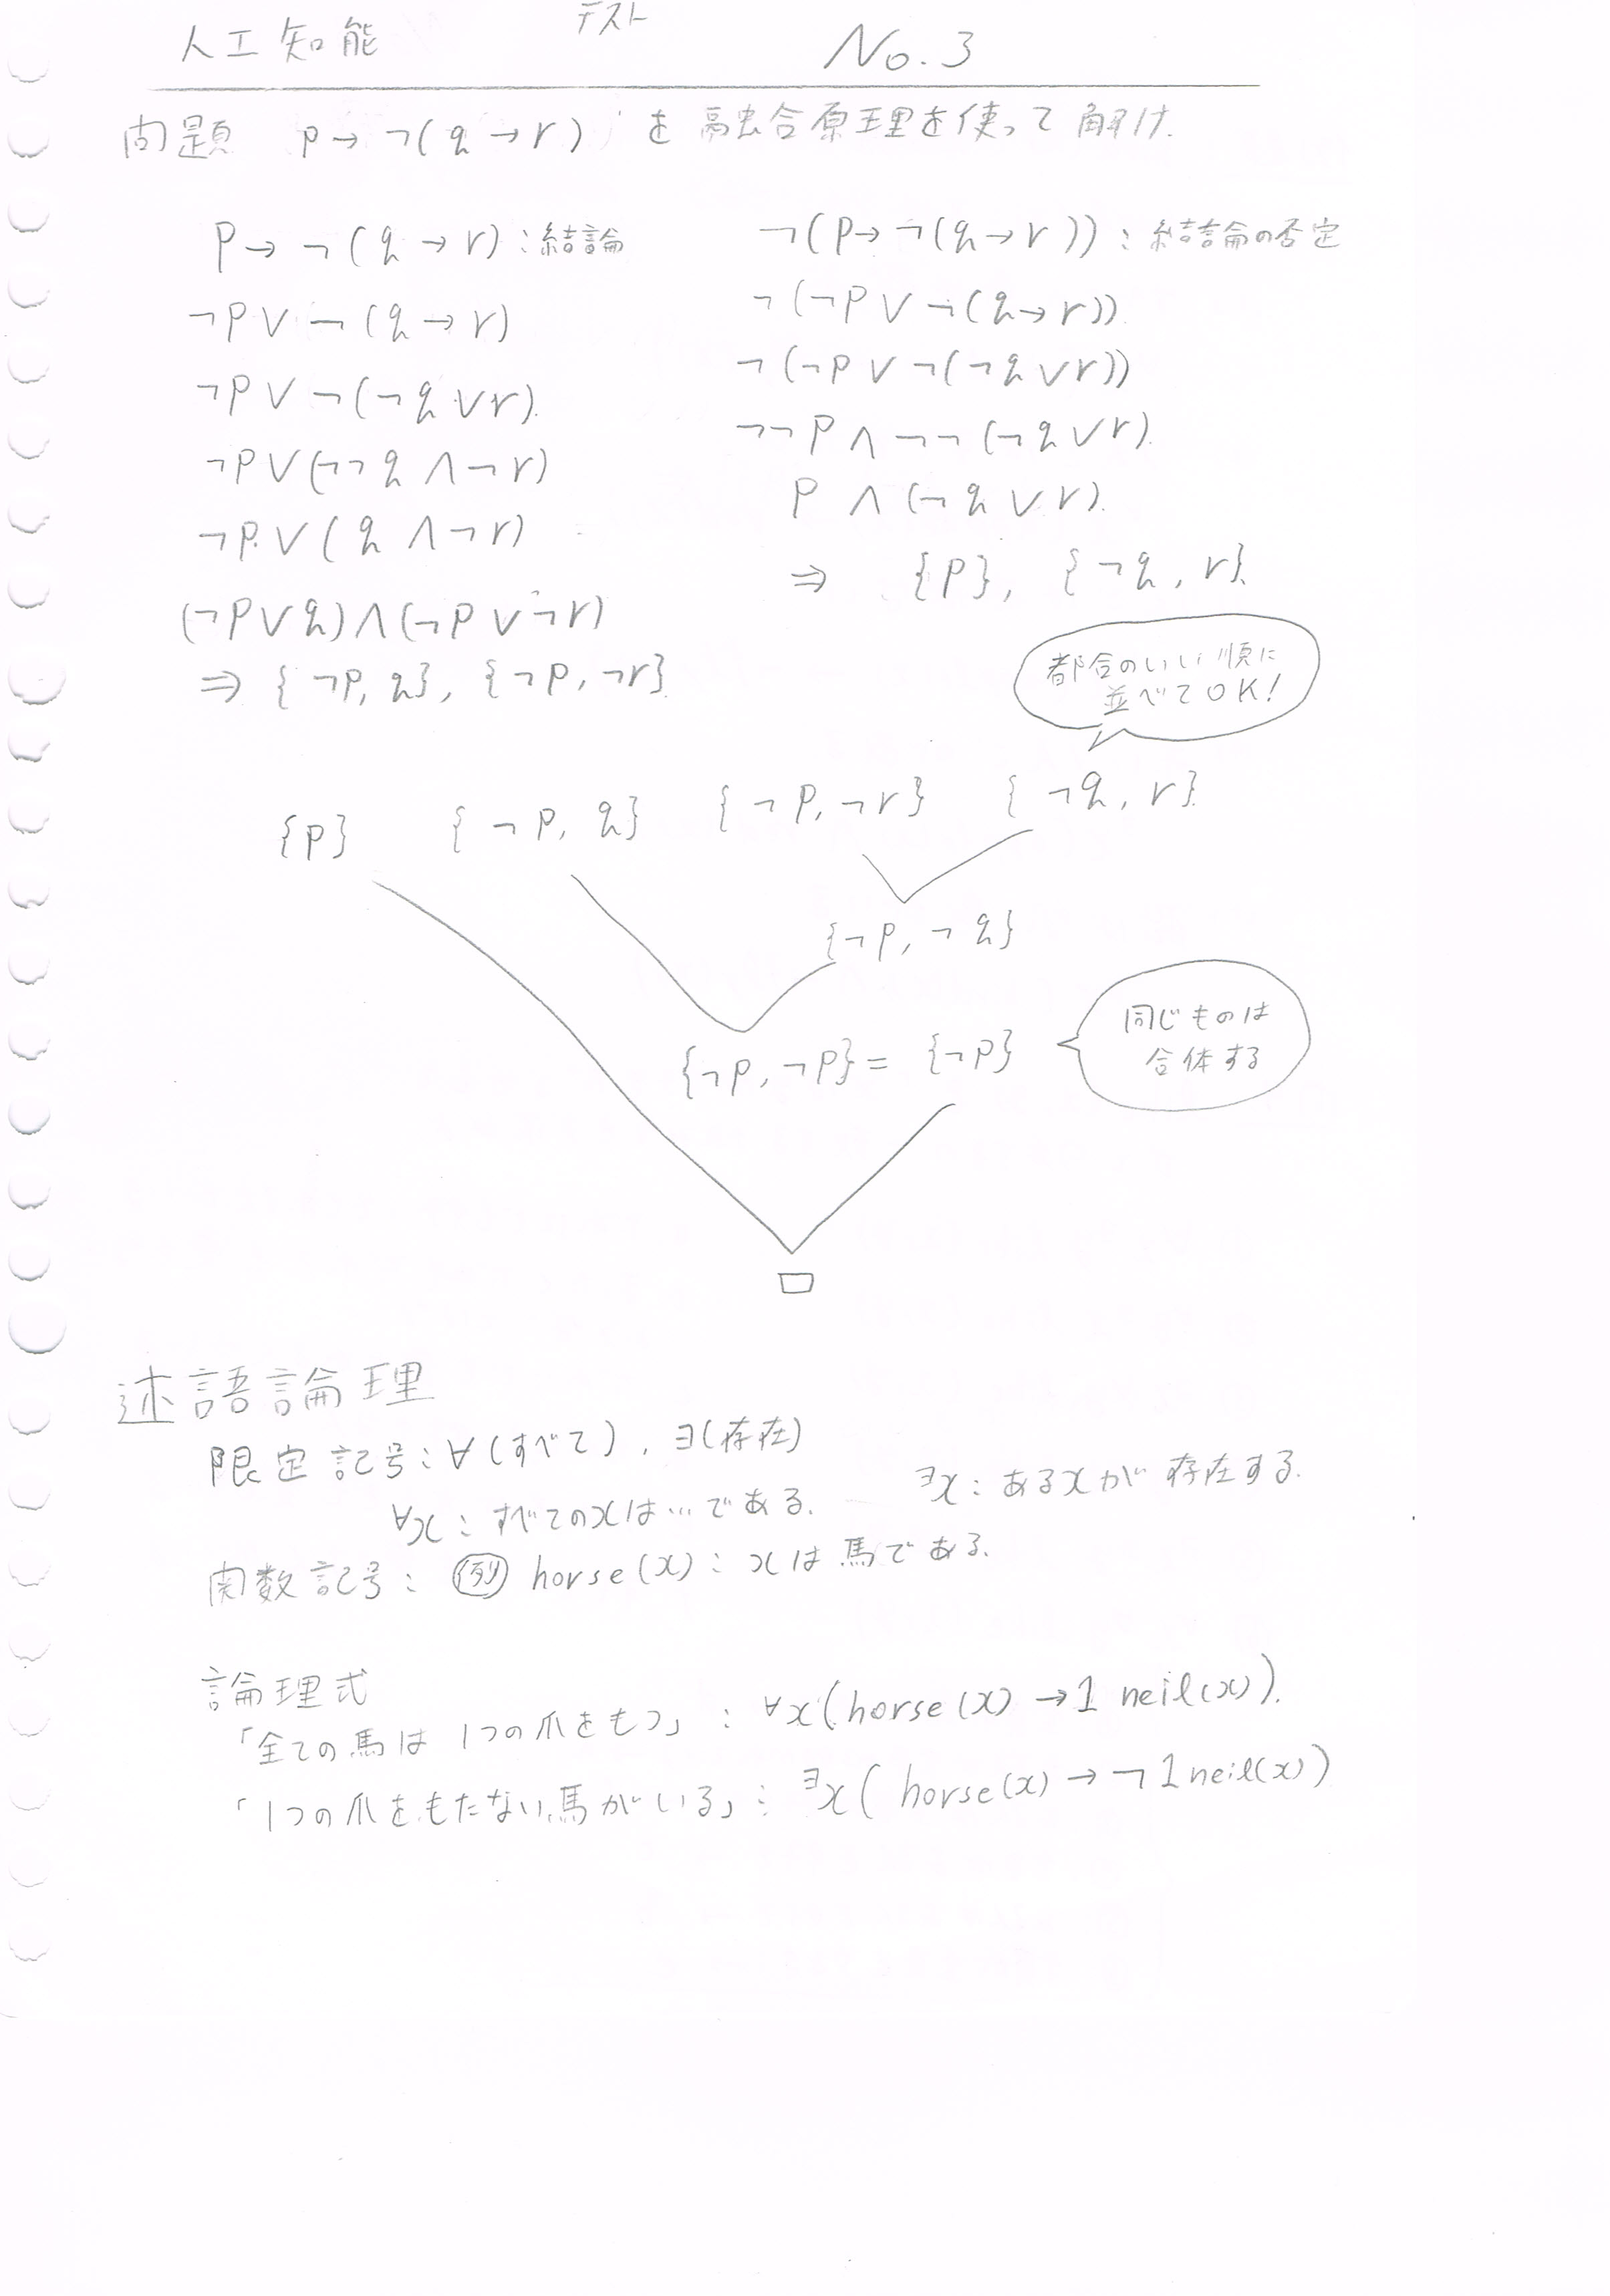 人工知能 テスト No.3
問題 P→¬(q→r) を融合原理を使って解け.
P→¬(q→r):結論
¬P∨¬(q→r)
¬P∨¬(¬q∨r).
¬P∨(¬¬q∧¬r)
¬P∨(q∧¬r)
(¬P∨q)∧(¬P∨¬r)
⇒{¬P,q},{¬P,¬r}
¬(P→¬(q→r)):結論の否定
¬(¬P∨¬(q→r))
¬(¬P∨¬(¬q∨r))
¬¬P∧¬¬(¬q∨r).
P∧(¬q∨r).
⇒ {P}, {¬q, r}
都合のいい順に
並べてOK!
{P} {¬P, q} {¬P,¬r} {¬q, r}
{¬P,¬q}
{¬P,¬P}= {¬P}
同じものは
合体する
□
述語論理
限定記号:∀(すべて), ∃(存在)
∀x:すべてのxは…である. ∃x:あるxが存在する.
関数記号: 例 horse(x):xは馬である.
論理式
「全ての馬は1つの爪をもつ」:∀x(horse(x)→1neil(x)).
「1つの爪をもたない馬がいる」:∃x(horse(x)→¬1neil(x))